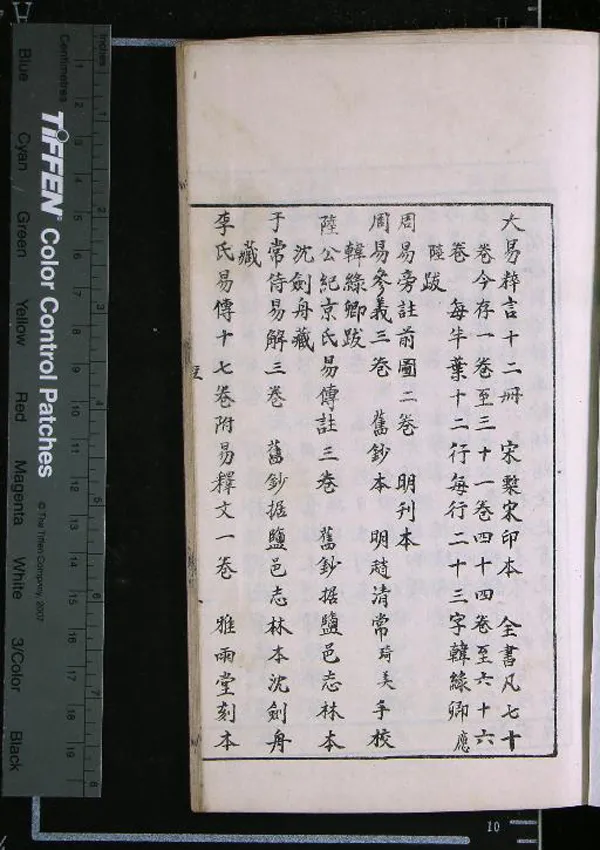 大易粹言十二冊　宋槧宋印本　全書凡七十
卷今存一卷至三十一卷四十四卷至六十六
卷　每半葉十二行每行二十三字韓綠卿應
陸跋
周易旁註前圖二卷　明刊本
周易參義三卷　舊鈔本　明趙清常琦美手校
韓綠卿跋
陸公紀京氏易傳註三卷　舊鈔据鹽邑志林本
沈劍舟藏
于常侍易解三卷　舊鈔据鹽邑志林本沈劍舟
藏
李氏易傳十七卷附易釋文一卷　雅雨堂刻本
Inches
1
2
3
4
5
6
7
8
Centimetres
1
2
3
4
5
6
7
8
9
10
11
12
13
14
15
16
17
18
19
TIFFEN® Color Control Patches
© The Tiffen Company, 2007
Blue
Cyan
Green
Yellow
Red
Magenta
White
3/Color
Black
A
10